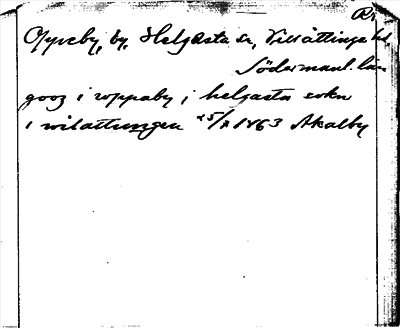 Oppeby, by, Helgesta sn, Villåttinge hd
Södermanl. län
gooz i oppaby i helgasta sokn
i wilattungen 25/7 1463 Åkalby